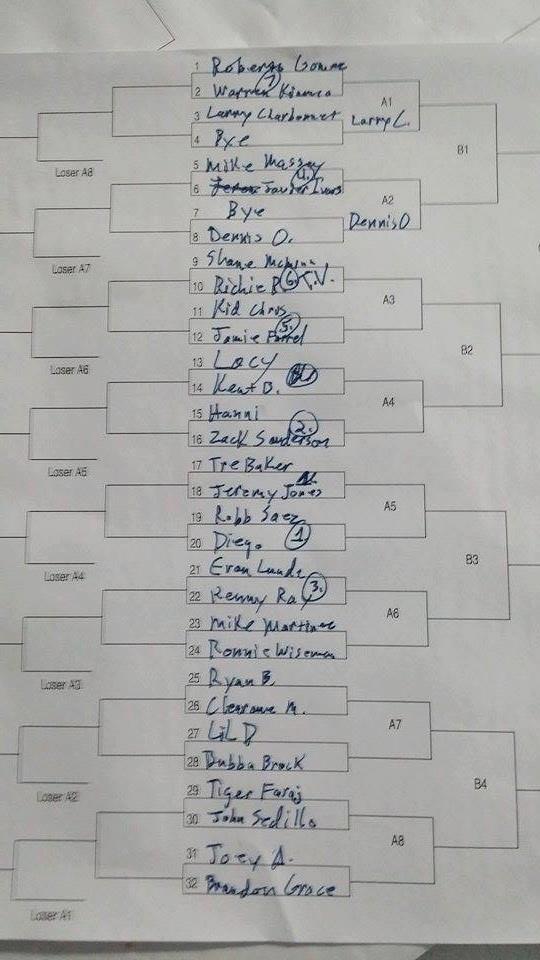 1 Roberto Gomez
2 Warren Kiamco
7
3 Larry Charbonnet
4 Bye
A1
Larry C.
B1
Loser A8
5 Mike Massey
4.
6 Javier
7 Bye
8 Dennis O.
A2
Dennis O
Loser A7
9 Shane
10 Richie R. T.V.
6.
A3
11 Kid Chris
5.
12 Jamie Farrel
B2
Loser A6
13 Lacy
14 Kent B.
A4
15 Hanni
2.
16 Zack Sanderson
Loser A5
17 Tre Baker
18 Jeremy Jones
A5
19 Robb Saez
1
20 Diego
B3
Loser A4
21 Evan Lunda
3.
22 Kenny Ray
A6
23 Mike Martinez
24 Ronnie Wiseman
Loser A3
25 Ryan B.
26 M.
A7
27 Lil D
28 Bubba Brock
B4
Loser A2
29 Tiger Faraj
30 John Sedillo
A8
31 Joey A.
32 Brandon Grace
Loser A1